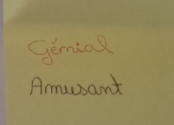 Génial
Amusant